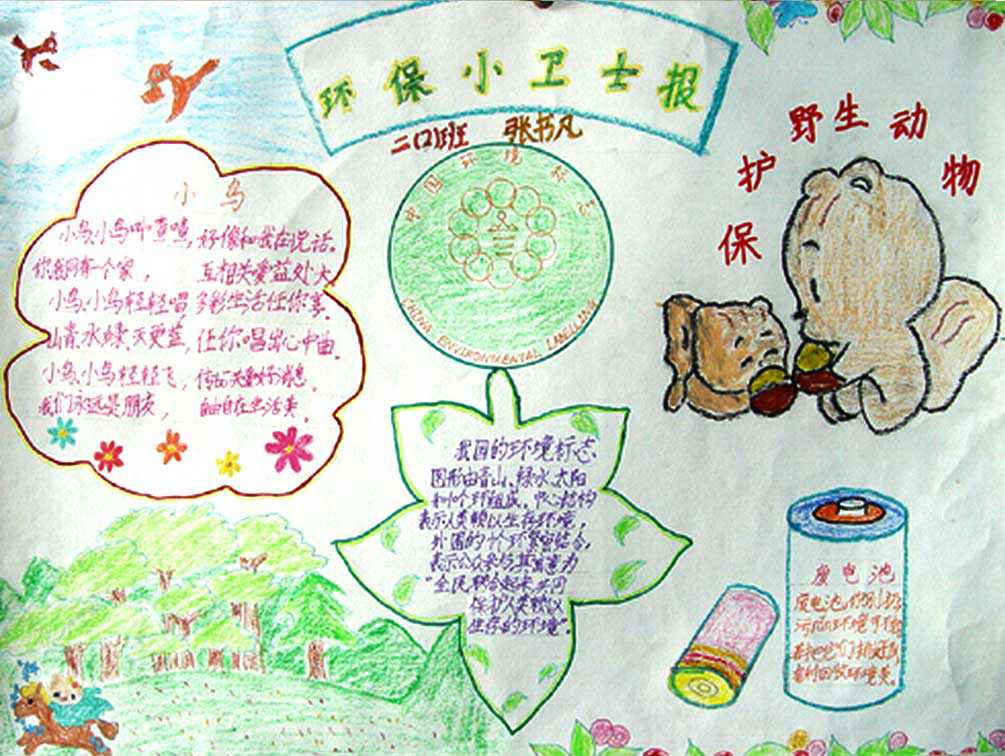 环保小卫士报
二(2)班 张书凡
保护野生动物
小鸟
小鸟小鸟叫喳喳,好像和我在说话。
你我同有一个家, 互相关爱益处大
小鸟、小鸟轻轻唱,多彩生活任你享。
山青、水绿、天更蓝,任你唱出心中曲。
小鸟、小鸟轻轻飞,传的关爱好消息。
我们永远是朋友, 自由自在生活美。
中国环境标志
CHINA ENVIRONMENTAL LABELLING
我国的环境标志
图形由青山、绿水、太阳
和十个环组成。中心结构
表示人类赖以生存环境,
外围的十个环紧密结合,
表示公众参与,其寓意为
“全民联合起来,共同
保护人类赖以
生存的环境”。
废电池
废电池,们别小
污染环境
有利回收环境美。